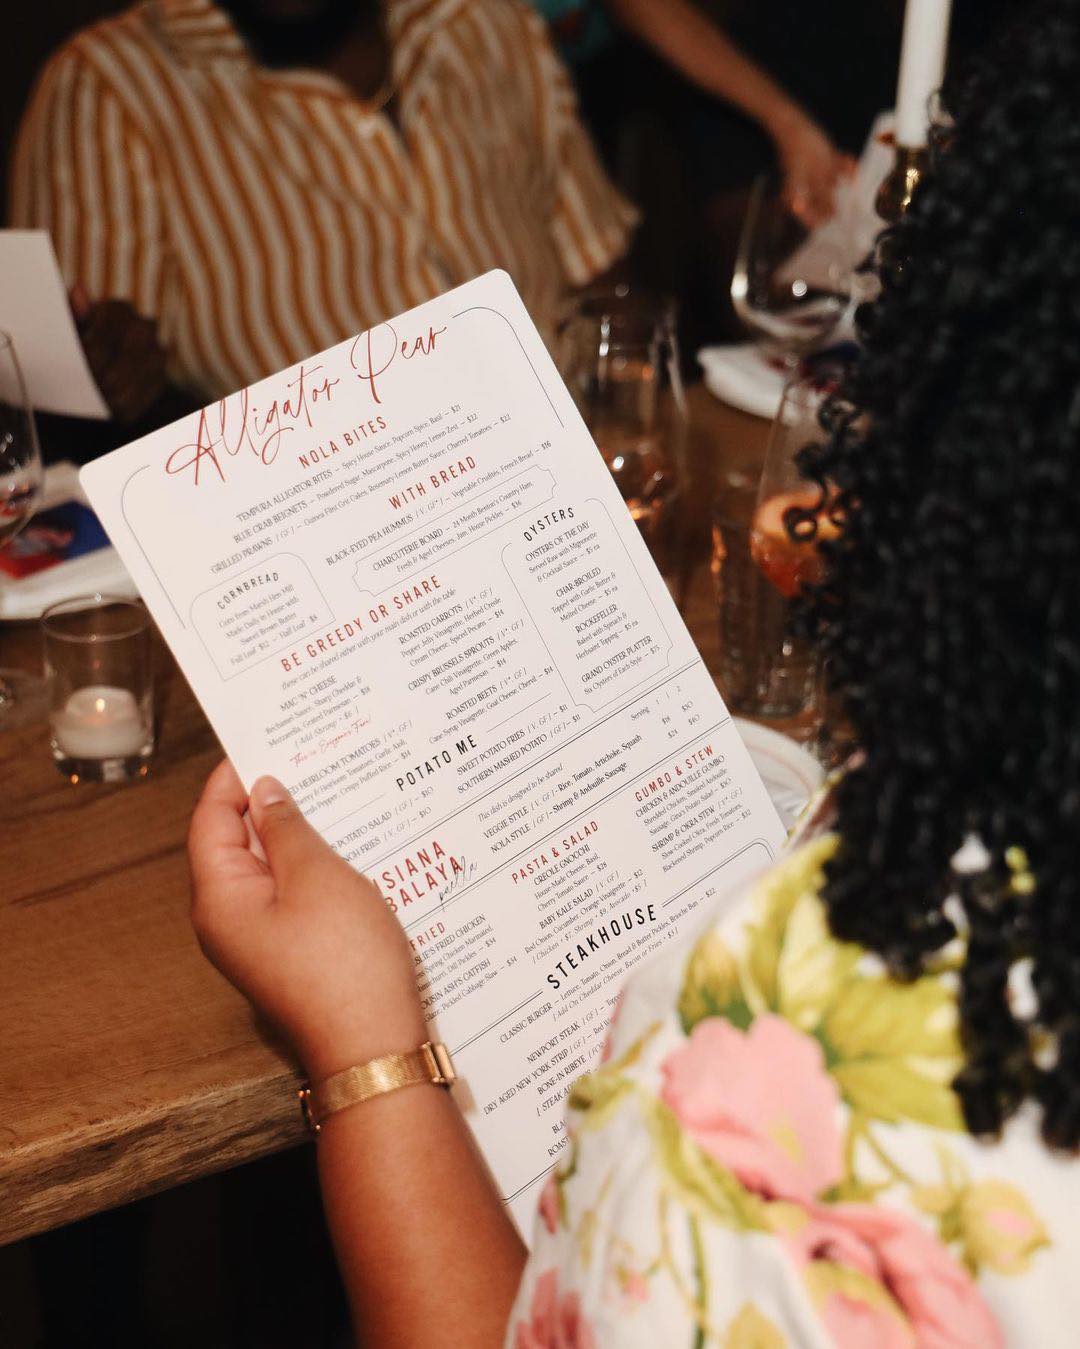 Alligator Pear
NOLA BITES
TEMPURA ALLIGATOR BITES – Spicy House Sauce, Popcorn Spice, Basil – $21
BLUE CRAB BEIGNETS – Powdered Sugar, Mascarpone, Spicy Honey, Lemon Zest – $22
GRILLED PRAWNS [ GF ] – Guinea Flint Grit Cakes, Rosemary Lemon Butter Sauce, Charred Tomatoes – $22
WITH BREAD
BLACK-EYED PEA HUMMUS [ V, GF* ] – Vegetable Crudités, French Bread – $16
CHARCUTERIE BOARD – 24 Month Benton's Country Ham,
Fresh & Aged Cheeses, Jam, House Pickles – $36
CORNBREAD
Corn from Marsh Hen Mill
Made Daily in House with
Sweet Brown Butter
Full Loaf $12 – Half Loaf $8
OYSTERS
OYSTERS OF THE DAY
Served Raw with Mignonette
& Cocktail Sauce – $5 ea
CHAR-BROILED
Topped with Garlic Butter &
Melted Cheese – $5 ea
ROCKEFELLER
Baked with Spinach &
Herbsaint Topping – $5 ea
GRAND OYSTER PLATTER
Six Oysters of Each Style – $75
BE GREEDY OR SHARE
these can be shared either with your main dish or with the table
MAC 'N' CHEESE
Bechamel Sauce, Sharp Cheddar &
Mozzarella, Grated Parmesan – $18
[ Add Shrimp + $6 ]
This is Everyones Fave!
HEIRLOOM TOMATOES [ V* GF ]
& Heirloom Tomatoes, Garlic Aioli,
Pepper, Crispy Puffed Rice – $14
ROASTED CARROTS [ V* GF ]
Pepper Jelly Vinaigrette, Herbed Creole
Cream Cheese, Spiced Pecans – $14
CRISPY BRUSSELS SPROUTS [ V, GF ]
Cane Chili Vinaigrette, Green Apples,
Aged Parmesan – $14
ROASTED BEETS [ V* GF ]
Cane Syrup Vinaigrette, Goat Cheese, Chervil – $14
POTATO ME
POTATO SALAD [ GF ] – $10
FRIES [ V, GF ] – $10
SWEET POTATO FRIES [ V, GF ] – $11
SOUTHERN MASHED POTATO [ GF ] – $11
ISIANA
BALAYA
paella
This dish is designed to be shared
Serving 1 2
VEGGIE STYLE [ V, GF ] – Rice, Tomato, Artichoke, Squash $18 $30
NOLA STYLE [ GF ] – Shrimp & Andouille Sausage $24 $40
FRIED
FRIED CHICKEN
Spring Chicken Marinated,
Dill Pickles – $34
COUSIN ASH'S CATFISH
Glaze, Pickled Cabbage Slaw – $34
PASTA & SALAD
CREOLE GNOCCHI
House-Made Cheese, Basil,
Cherry Tomato Sauce – $28
BABY KALE SALAD [ V, GF ]
Red Onion, Cucumber, Orange Vinaigrette – $12
[ Chicken + $7, Shrimp + $9, Avocado +$5 ]
GUMBO & STEW
CHICKEN & ANDOUILLE GUMBO
Shredded Chicken, Smoked Andouille
Sausage, Gina's Potato Salad – $30
SHRIMP & OKRA STEW [ V* GF ]
Slow-Cooked Okra, Fresh Tomatoes,
Blackened Shrimp, Popcorn Rice – $32
STEAKHOUSE
CLASSIC BURGER – Lettuce, Tomato, Onion, Bread & Butter Pickles, Brioche Bun – $22
[ Add On Cheddar Cheese, Bacon or Fries + $3 ]
NEWPORT STEAK [ GF ] –
DRY AGED NEW YORK STRIP [ GF ] – Red
BONE-IN RIBEYE [ FOR
[ STEAK